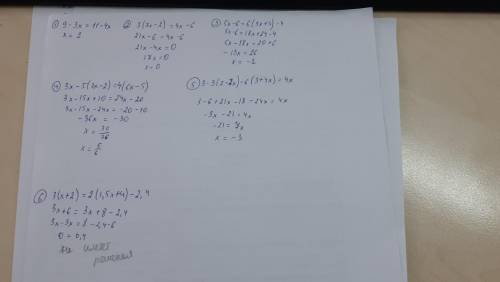 ① 9-3x=11-4x
x=2
② 3(7x-2)=4x-6
21x-6=4x-6
21x-4x=0
17x=0
x=0
③ 5x-6=6(3x+4)-4
5x-6=18x+24-4
5x-18x=20+6
-13x=26
x=-2
④ 3x-5(3x-2)=4(6x-5)
3x-15x+10=24x-20
3x-15x-24x=-20-10
-36x=-30
x=30/36
x=5/6
⑤ 3-3(2-7x)-6(3+4x)=4x
3-6+21x-18-24x=4x
-3x-21=4x
-21=7x
x=-3
⑥ 3(x+2)=2(1,5x+4)-2,4
3x+6=3x+8-2,4
3x-3x=8-2,4-6
0=0,4
не имеет
решения